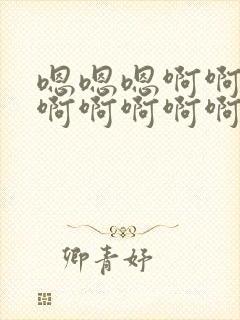 嗯嗯嗯啊啊
啊啊啊啊啊
卿青妤